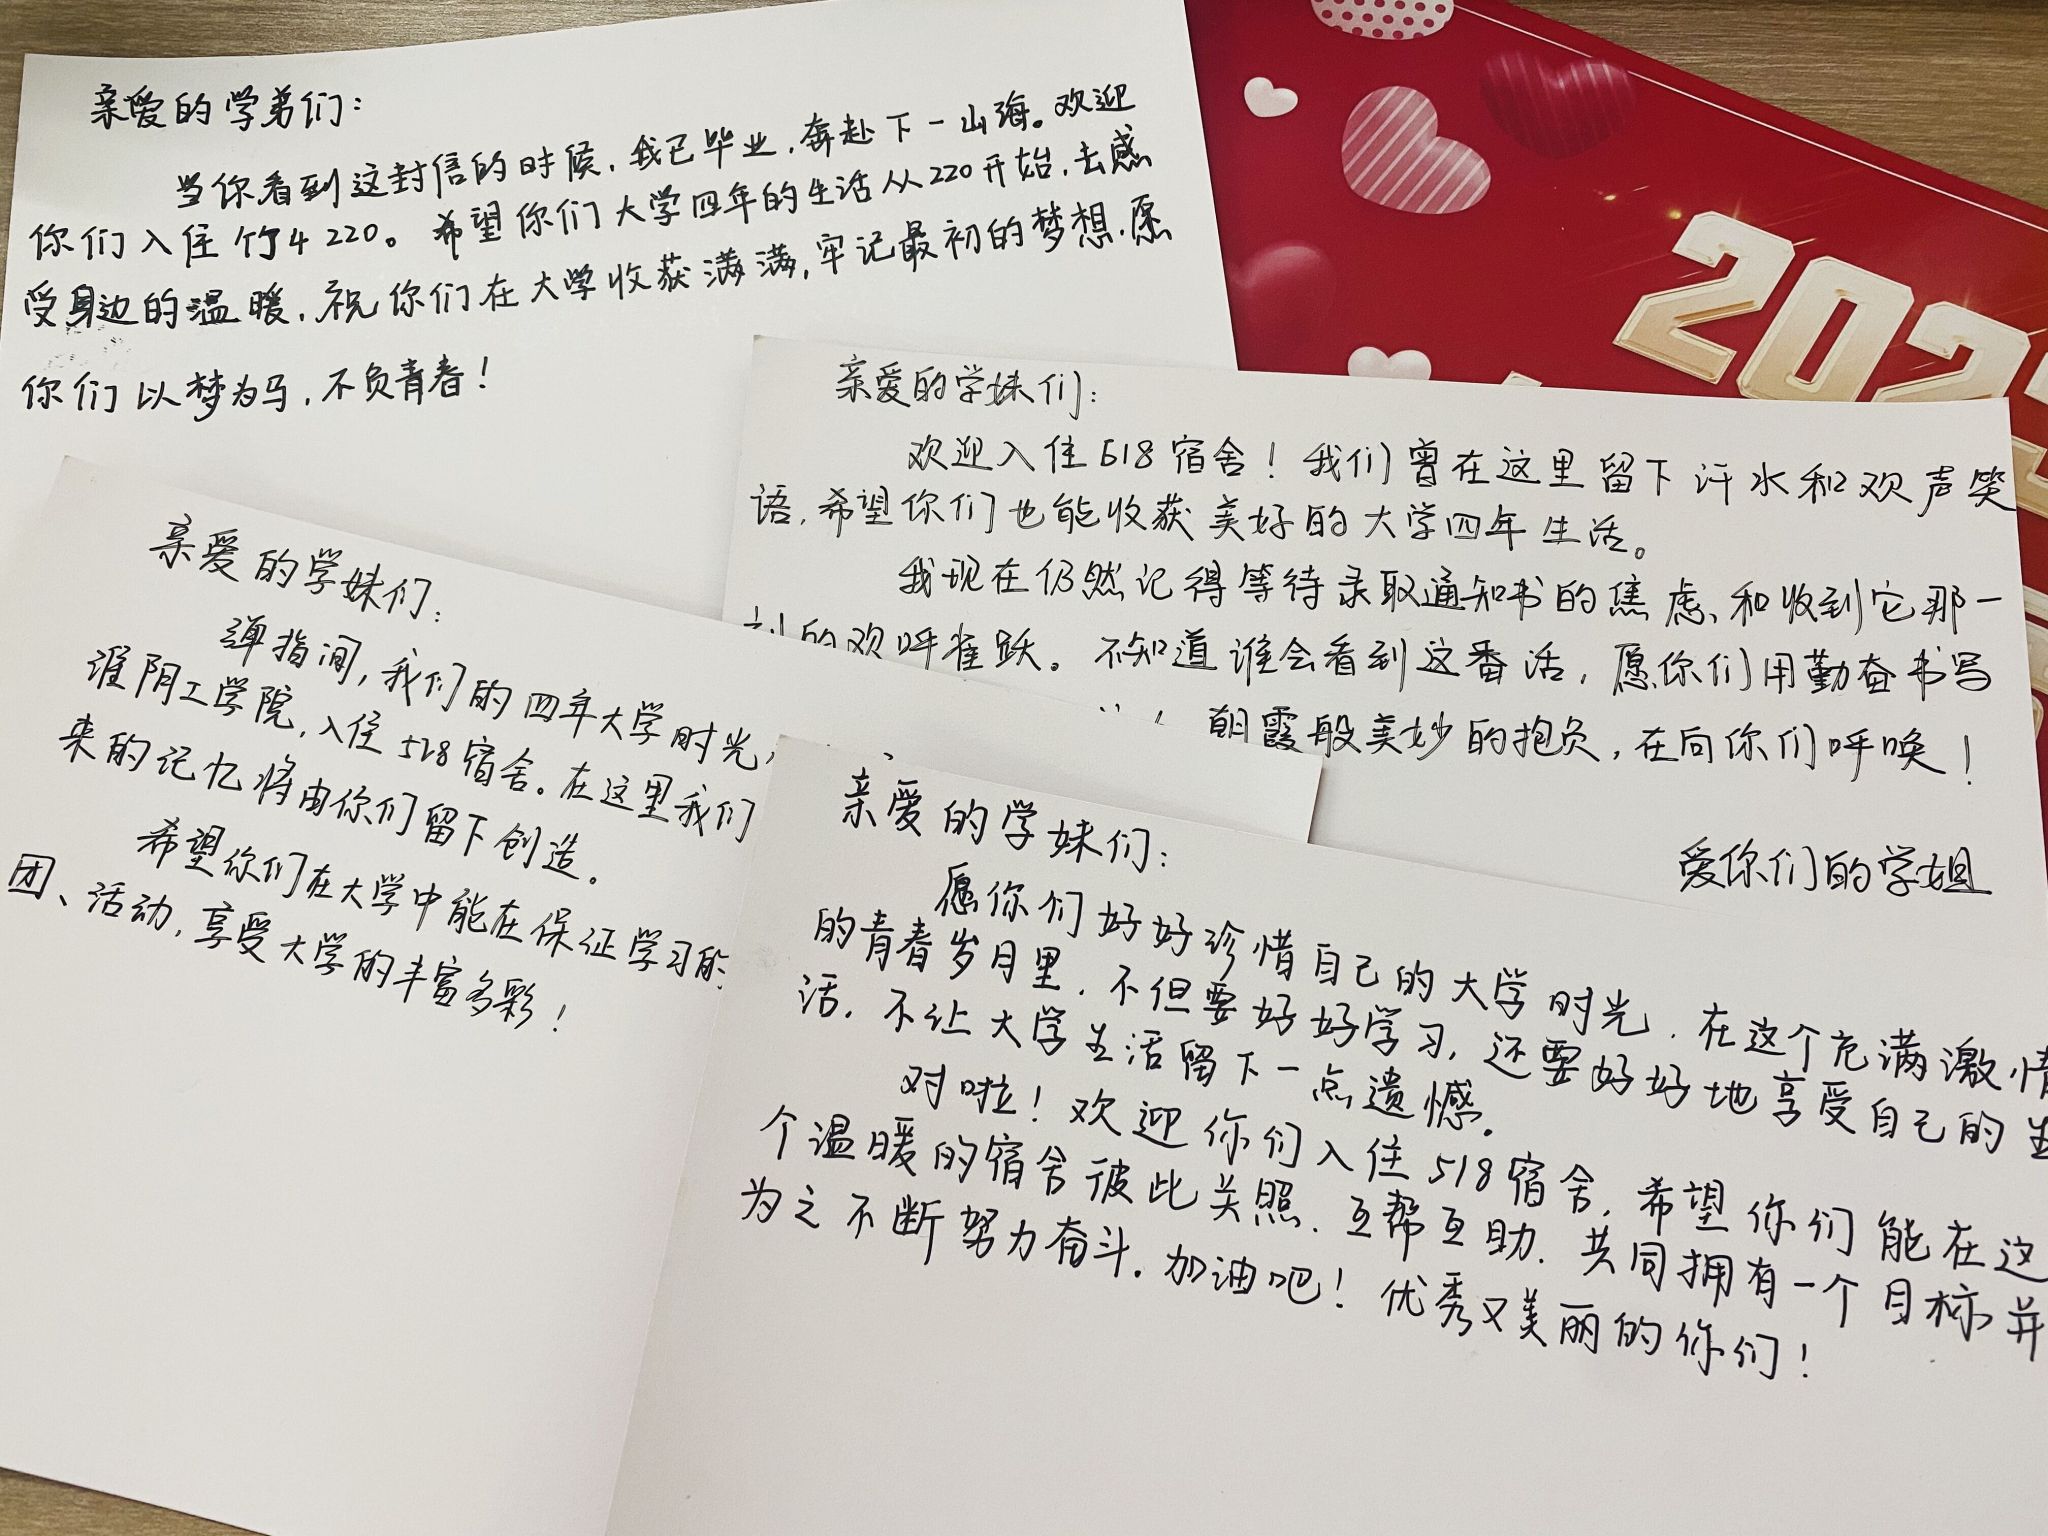 亲爱的学弟们：
当你看到这封信的时候，我已毕业，奔赴下一山海。欢迎
你们入住竹4 220。希望你们大学四年的生活从220开始，去感
受身边的温暖，祝你们在大学收获满满，牢记最初的梦想，愿
你们以梦为马，不负青春！
202
亲爱的学妹们：
欢迎入住518宿舍！我们曾在这里留下汗水和欢声笑
语，希望你们也能收获美好的大学四年生活。
我现在仍然记得等待录取通知书的焦虑、和收到它那一
的欢呼雀跃。不知道谁会看到这番话，愿你们用勤奋书写
朝霞般美妙的抱负，在向你们呼唤！
爱你们的学姐
亲爱的学妹们：
弹指间，我们的四年大学时光，
淮阴工学院，入住518宿舍。在这里我们
来的记忆将由你们留下创造。
希望你们在大学中能在保证学习的
团、活动，享受大学的丰富多彩！
亲爱的学妹们：
愿你们好好珍惜自己的大学时光，在这个充满激情
的青春岁月里，不但要好好学习，还要好好地享受自己的生
活，不让大学生活留下一点遗憾。
对啦！欢迎你们入住518宿舍，希望你们能在这
个温暖的宿舍彼此关照、互帮互助、共同拥有一个目标并
为之不断努力奋斗。加油吧！优秀又美丽的你们！